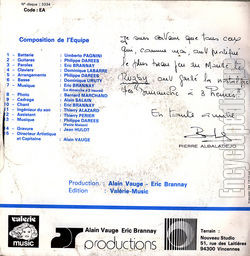 N° disque : 3334
Code : EA
Composition de l'Equipe
1 - Batterie : Umberto PAGNINI
2 - Guitares : Philippe DARESS
3 - Paroles : Eric BRANNAY
4 - Claviers : Dominique LABARRE
5 - Arrangements : Philippe DARESS
6 - Basse : Dominique
7 - Voix : Eric BRANNAY
- Photo : Bernard MARCHAND
- Cadrage : Alain BALAIN
- Chant : Eric BRANNAY
- Ingénieur du son : Thierry ALAZARD
- Assistant : Thierry PERIER
- Musique : Philippe DARESS
14 - Gravure : Jean HULOT
Directeur Artistique
et Capitaine : Alain VAUGE
Je suis certain que tous ceux
qui, comme moi, ont pratiqué
le plus beau jeu du Monde : le
Rugby, ont gardé la nostalgie
des "dimanche à 3 heures".
En toute amitié
PIERRE ALBALADEJO
Production : Alain Vauge - Eric Brannay
Edition : Valérie-Music
valérie
music
Alain Vauge Eric Brannay
productions
Terrain :
Nouveau Studio
51, rue des Laitières
94300 Vincennes